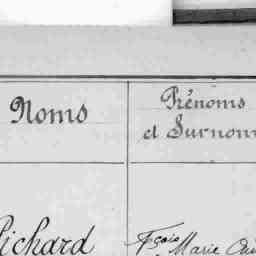 Noms
Prénoms
et Surnoms
Richard
Fçois Marie